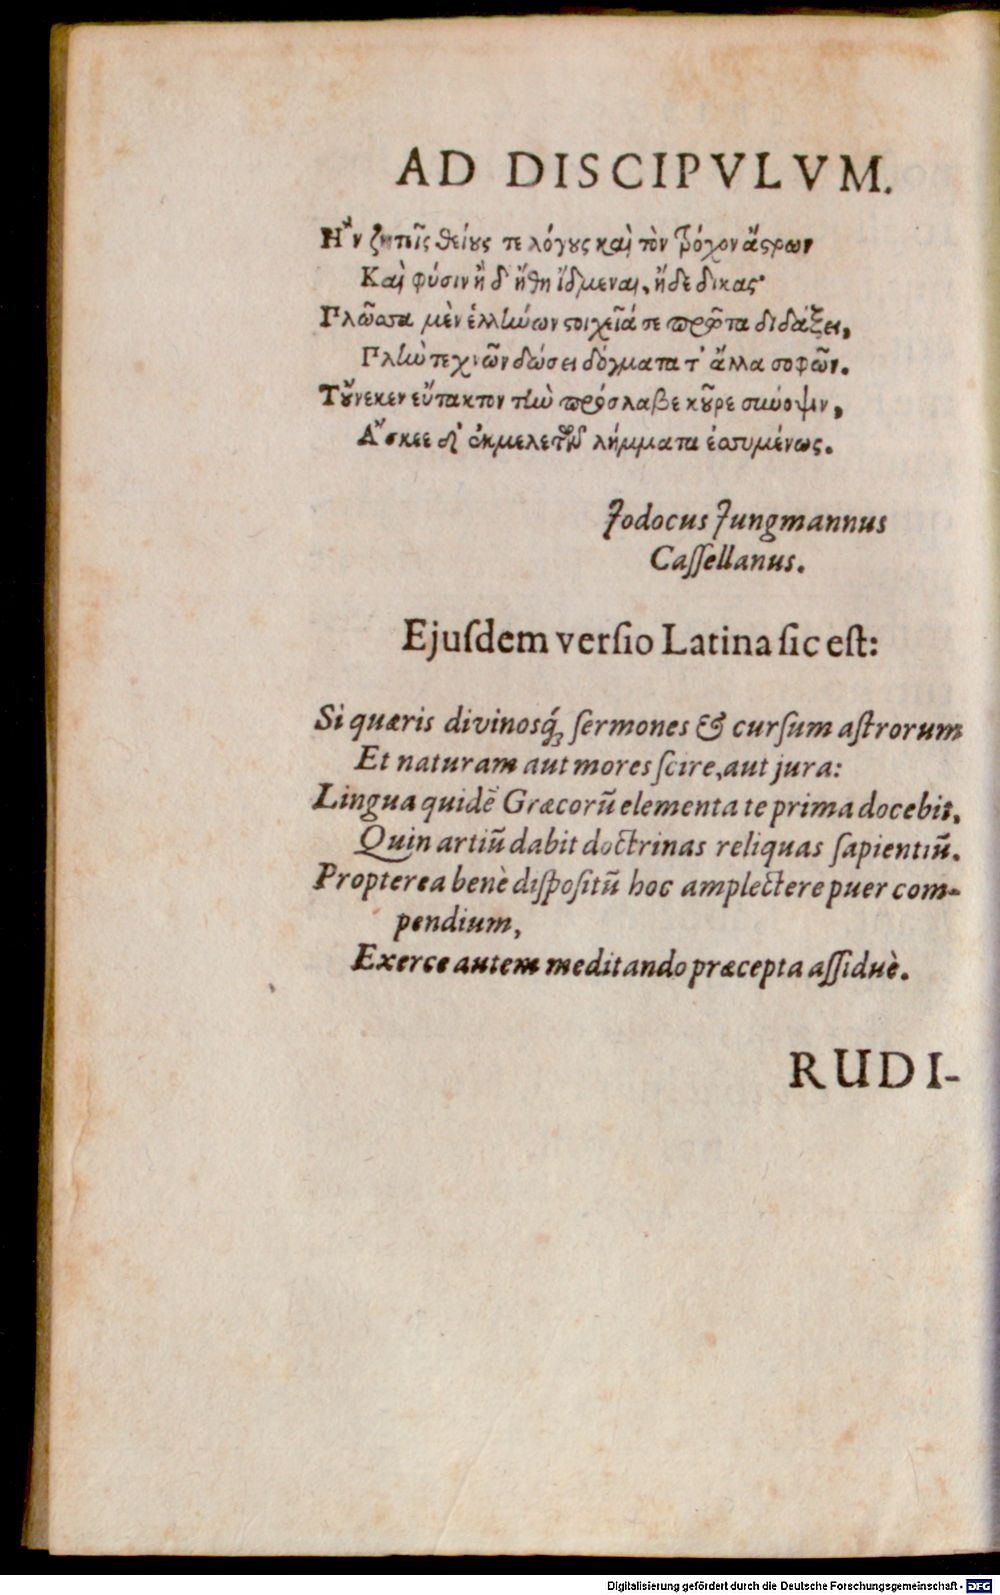 AD DISCIPVLVM.
Ἢν ζητῇς θείους τε λόγους καὶ τὸν τρόχον ἄστρων
Καὶ φύσιν ἢ δ' ἤθη ἴδμεναι, ἤδε δίκας·
Γλῶσσα μὲν ἑλλήνων στοιχεῖά σε πρῶτα διδάξει,
Γλὴν τεχνῶν δώσει δόγματα τ' ἄλλα σοφῶν.
Τοὔνεκεν εὔτακτον τὴν πρόσλαβε κοῦρε σύνοψιν,
Ἄσκεε δ' ἐκμελετῶν λήμματα ἐσσυμένως.
Jodocus Jungmannus
Caſſellanus.
Ejuſdem verſio Latina ſic eſt:
Si quæris divinosq́; ſermones & curſum aſtrorum
Et naturam aut mores ſcire, aut jura:
Lingua quidẽ Græcorũ elementa te prima docebit,
Quin artiũ dabit doctrinas reliquas ſapientiũ.
Propterea benè diſpoſitũ hoc amplectere puer com-
pendium,
Exerce autem meditando præcepta aſſiduè.
RUDI-
Digitalisierung gefördert durch die Deutsche Forschungsgemeinschaft - DFG